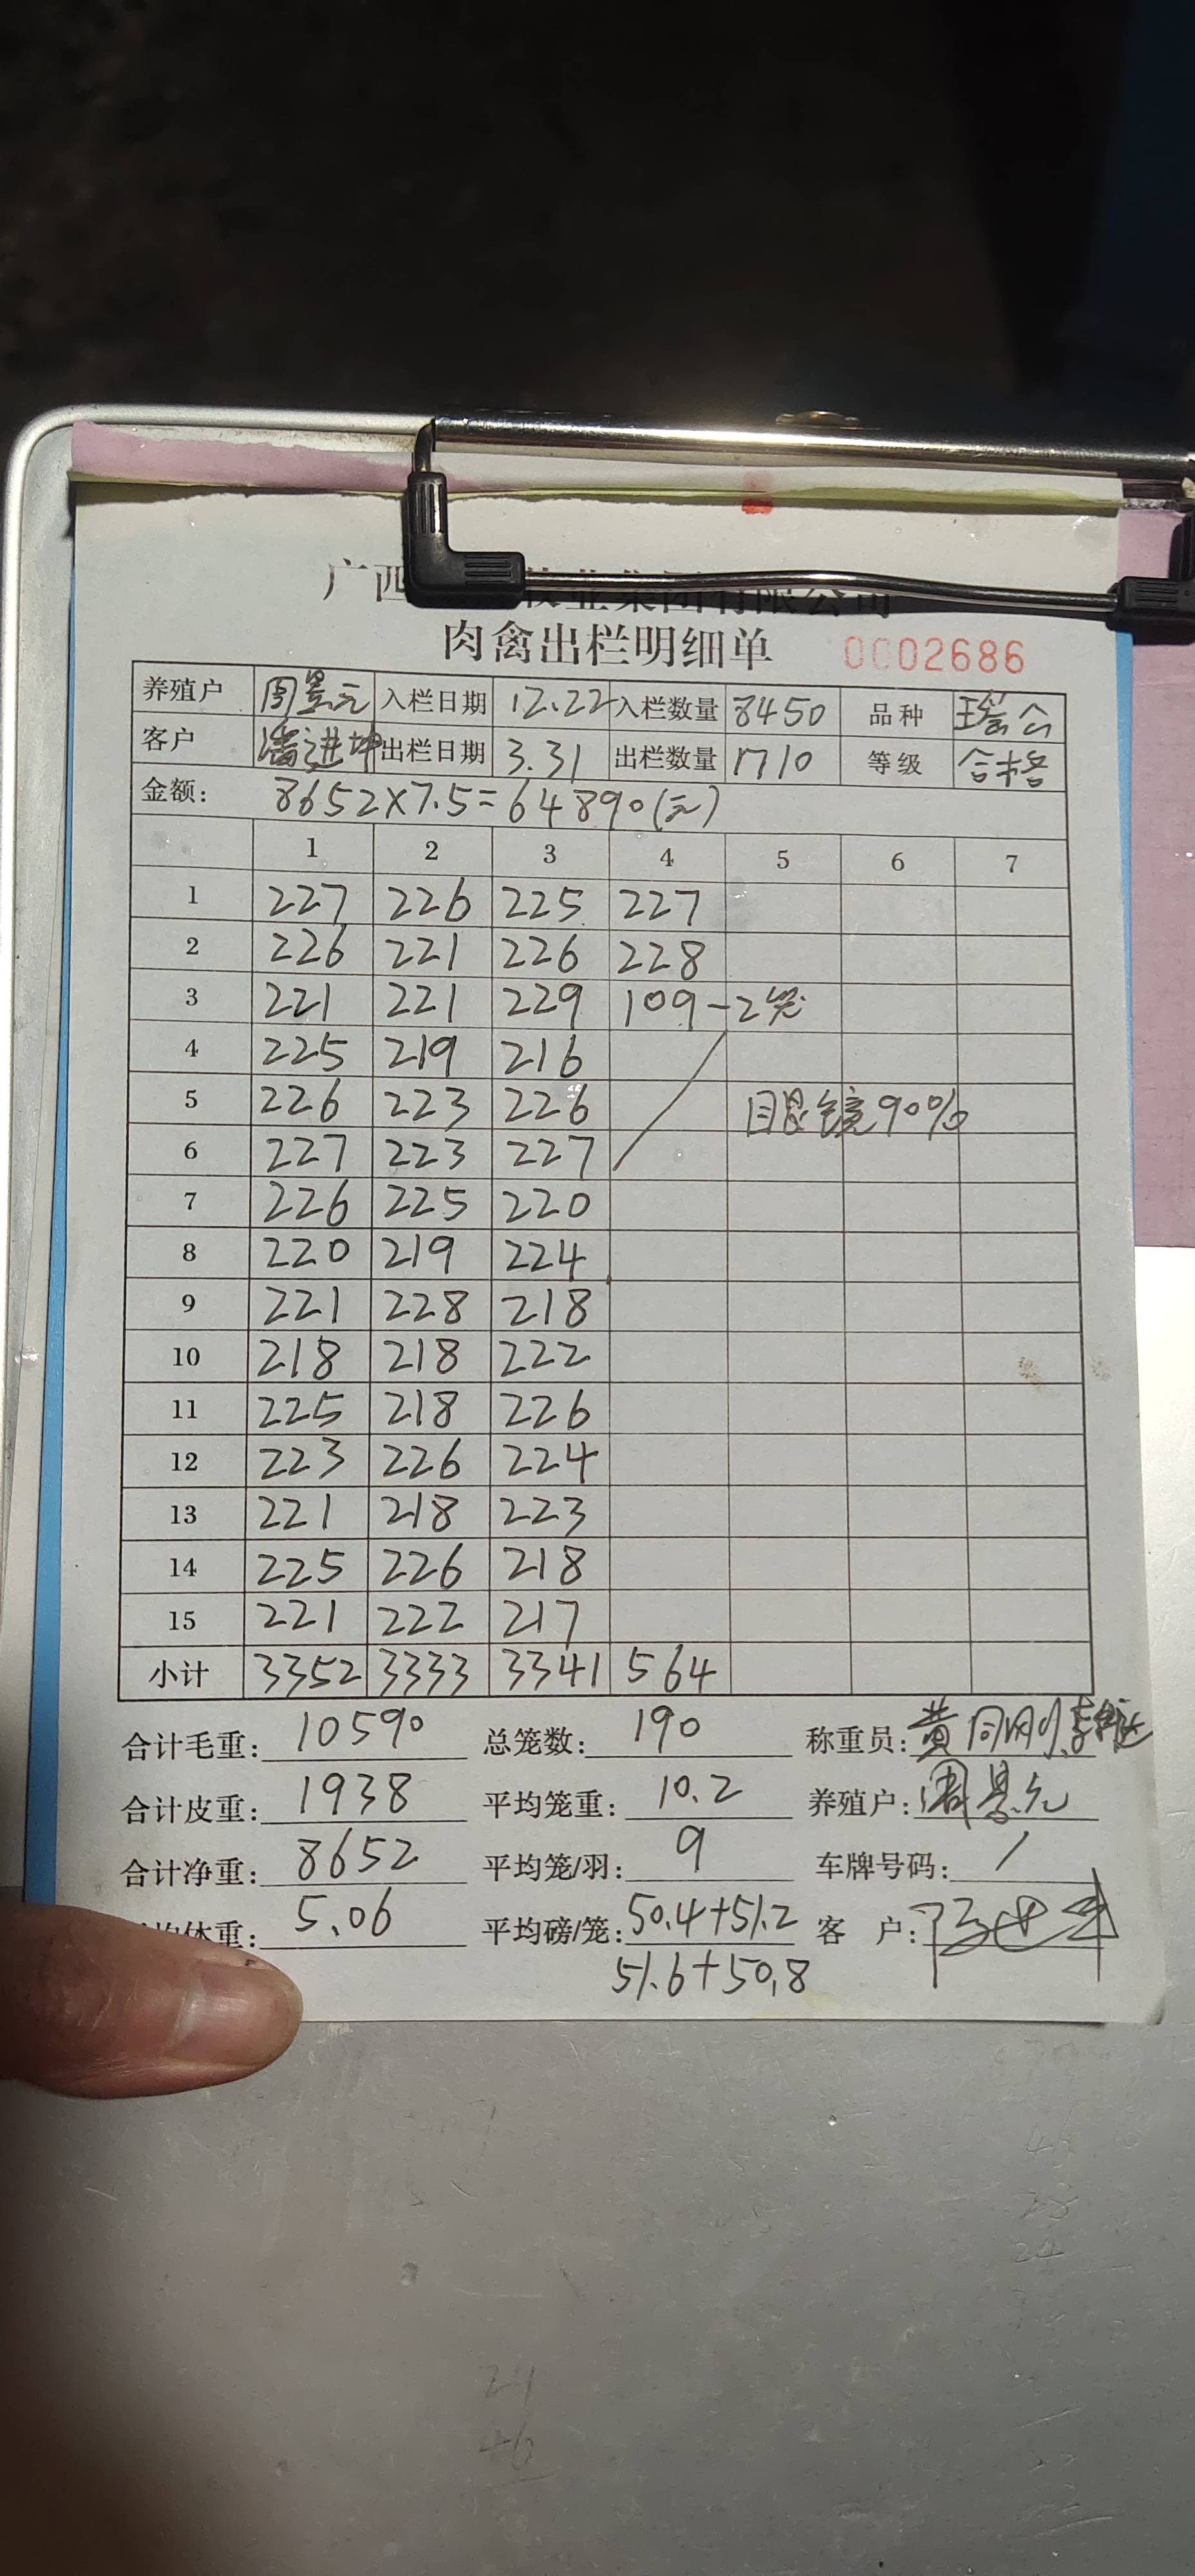 广西牧业集团有限公司
肉禽出栏明细单 0002686
养殖户 周景元 入栏日期 12.22 入栏数量 8450 品种 瑶公
客户 潘进坤 出栏日期 3.31 出栏数量 1710 等级 合格
金额: 8652×7.5=64890(元)
1 2 3 4 5 6 7
1 227 226 225 227
2 226 221 226 228
3 221 221 229 109-2笼
4 225 219 216
5 226 223 226 眼镜90%
6 227 223 227
7 226 225 220
8 220 219 224
9 221 228 218
10 218 218 222
11 225 218 226
12 223 226 224
13 221 218 223
14 225 226 218
15 221 222 217
小计 3352 3333 3341 564
合计毛重: 10590 总笼数: 190 称重员: 黄同刚
合计皮重: 1938 平均笼重: 10.2 养殖户: 周景元
合计净重: 8652 平均笼/羽: 9 车牌号码: /
体重: 5.06 平均磅/笼: 50.4+51.2 客 户:
51.6+50.8